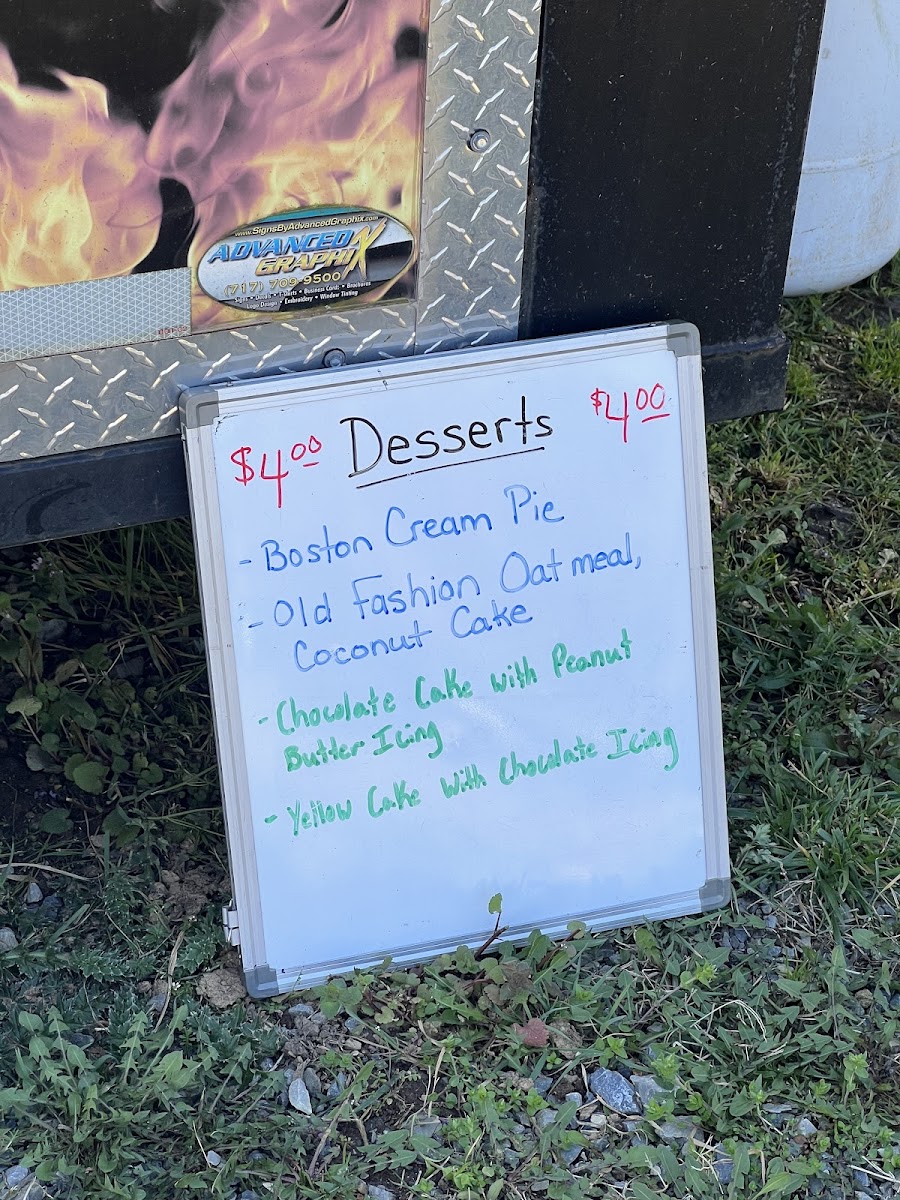 www.SignsByAdvancedGraphix.com
ADVANCED
GRAPHIX
(717) 709-9500
Signs • Decals • T-Shirts • Business Cards • Brochures
Logo Design • Embroidery • Window Tinting
$4.00 Desserts $4.00
- Boston Cream Pie
- Old Fashion Oatmeal,
Coconut Cake
- Chocolate Cake with Peanut
Butter Icing
- Yellow Cake with Chocolate Icing